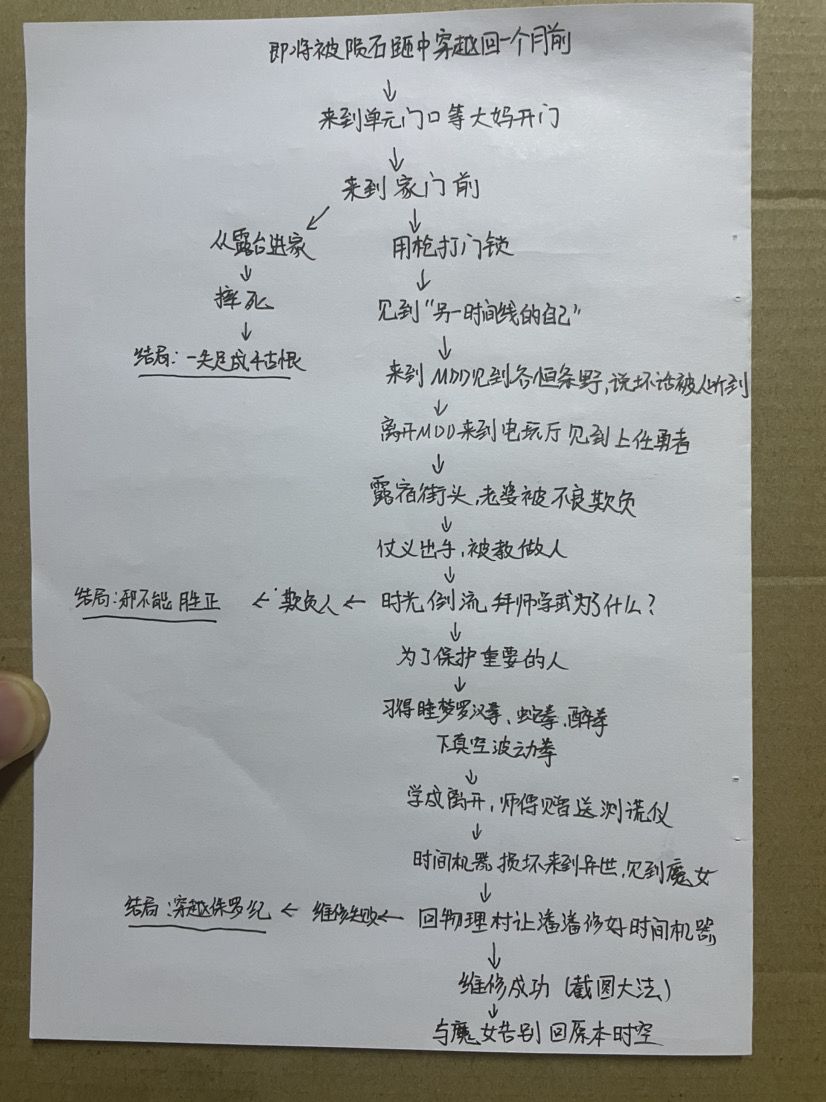 即将被陨石砸中穿越回一个月前
↓
来到单元门口等大妈开门
↓
来到家门前
↙ ↓
从露台进家 用枪打门锁
↓ ↓
摔死 见到“另一时间线的自己”
↓ ↓
结局:一失足成千古恨
来到MDD见到各恒条野,说坏话被人听到
↓
离开MDD来到电玩厅见到上任勇者
↓
露宿街头,老婆被不良欺负
↓
仗义出手,被教做人
↓
结局:邪不能胜正 ← 欺负人 ← 时光倒流 拜师学武为了什么?
↓
为了保护重要的人
↓
习得睡梦罗汉拳、蛇拳、醉拳
下真空波动拳
↓
学成离开,师傅赠送测谎仪
↓
时间机器损坏来到异世,见到魔女
↓
结局:穿越侏罗纪 ← 维修失败 ← 回物理村让潘潘修好时间机器
↓
维修成功(截图大法)
↓
与魔女告别 回原本时空